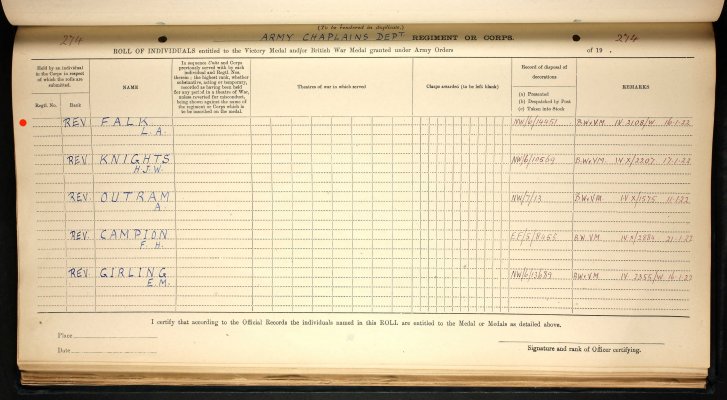 (To be rendered in duplicate.)
274 ARMY CHAPLAINS DEPT. REGIMENT OR CORPS. 274
ROLL OF INDIVIDUALS entitled to the Victory Medal and/or British War Medal granted under Army Orders of 19 .
Held by an individual
in the Corps in respect
of which the rolls are
submitted.
Regtl. No. Rank
NAME
In sequence Units and Corps
previously served with by each
individual and Regtl. Nos.
therein; the highest rank, whether
substantive, acting or temporary,
recorded as having been held
for any period in a theatre of War,
unless reverted for misconduct,
being shown against the name of
the regiment or Corps which is
to be inscribed on the medal.
Theatres of war in which served
Clasps awarded (to be left blank)
Record of disposal of
decorations
(a) Presented
(b) Despatched by Post
(c) Taken into Stock
REMARKS
REV. FALK NW/6/14451 B.W&V.M. IV 2108/W 16-1-22
L.A.
REV. KNIGHTS NW/6/10569 B.W&V.M. IV X/2207 17-1-22
H.J.W.
REV. OUTRAM NW/7/13 B.W&V.M. IV X/1575 11-1-22
A.
REV. CAMPION EF/5/8455 B.W. V.M. IV X/2884 21-1-22
F. H.
REV. GIRLING NW/6/13689 B.W&V.M. IV 2355/W 16-1-22
E.M.
I certify that according to the Official Records the individuals named in this ROLL are entitled to the Medal or Medals as detailed above.
Place
Date
Signature and rank of Officer certifying.